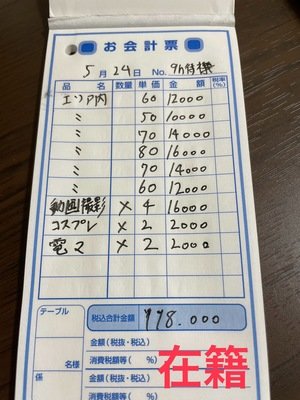 お会計票
5月24日 No. 9h待様
品名 数量 単価 金額 税率(%)
エリア内 60 12000
〃 50 10000
〃 70 14000
〃 80 16000
〃 70 14000
〃 60 12000
動画撮影 × 4 16000
コスプレ × 2 2000
電マ × 2 2000
テーブル 税込合計金額 ¥98.000
金額(税抜・税込)
名様 消費税額等( %)
係 金額(税抜・税込)
消費税額等( %)
在籍